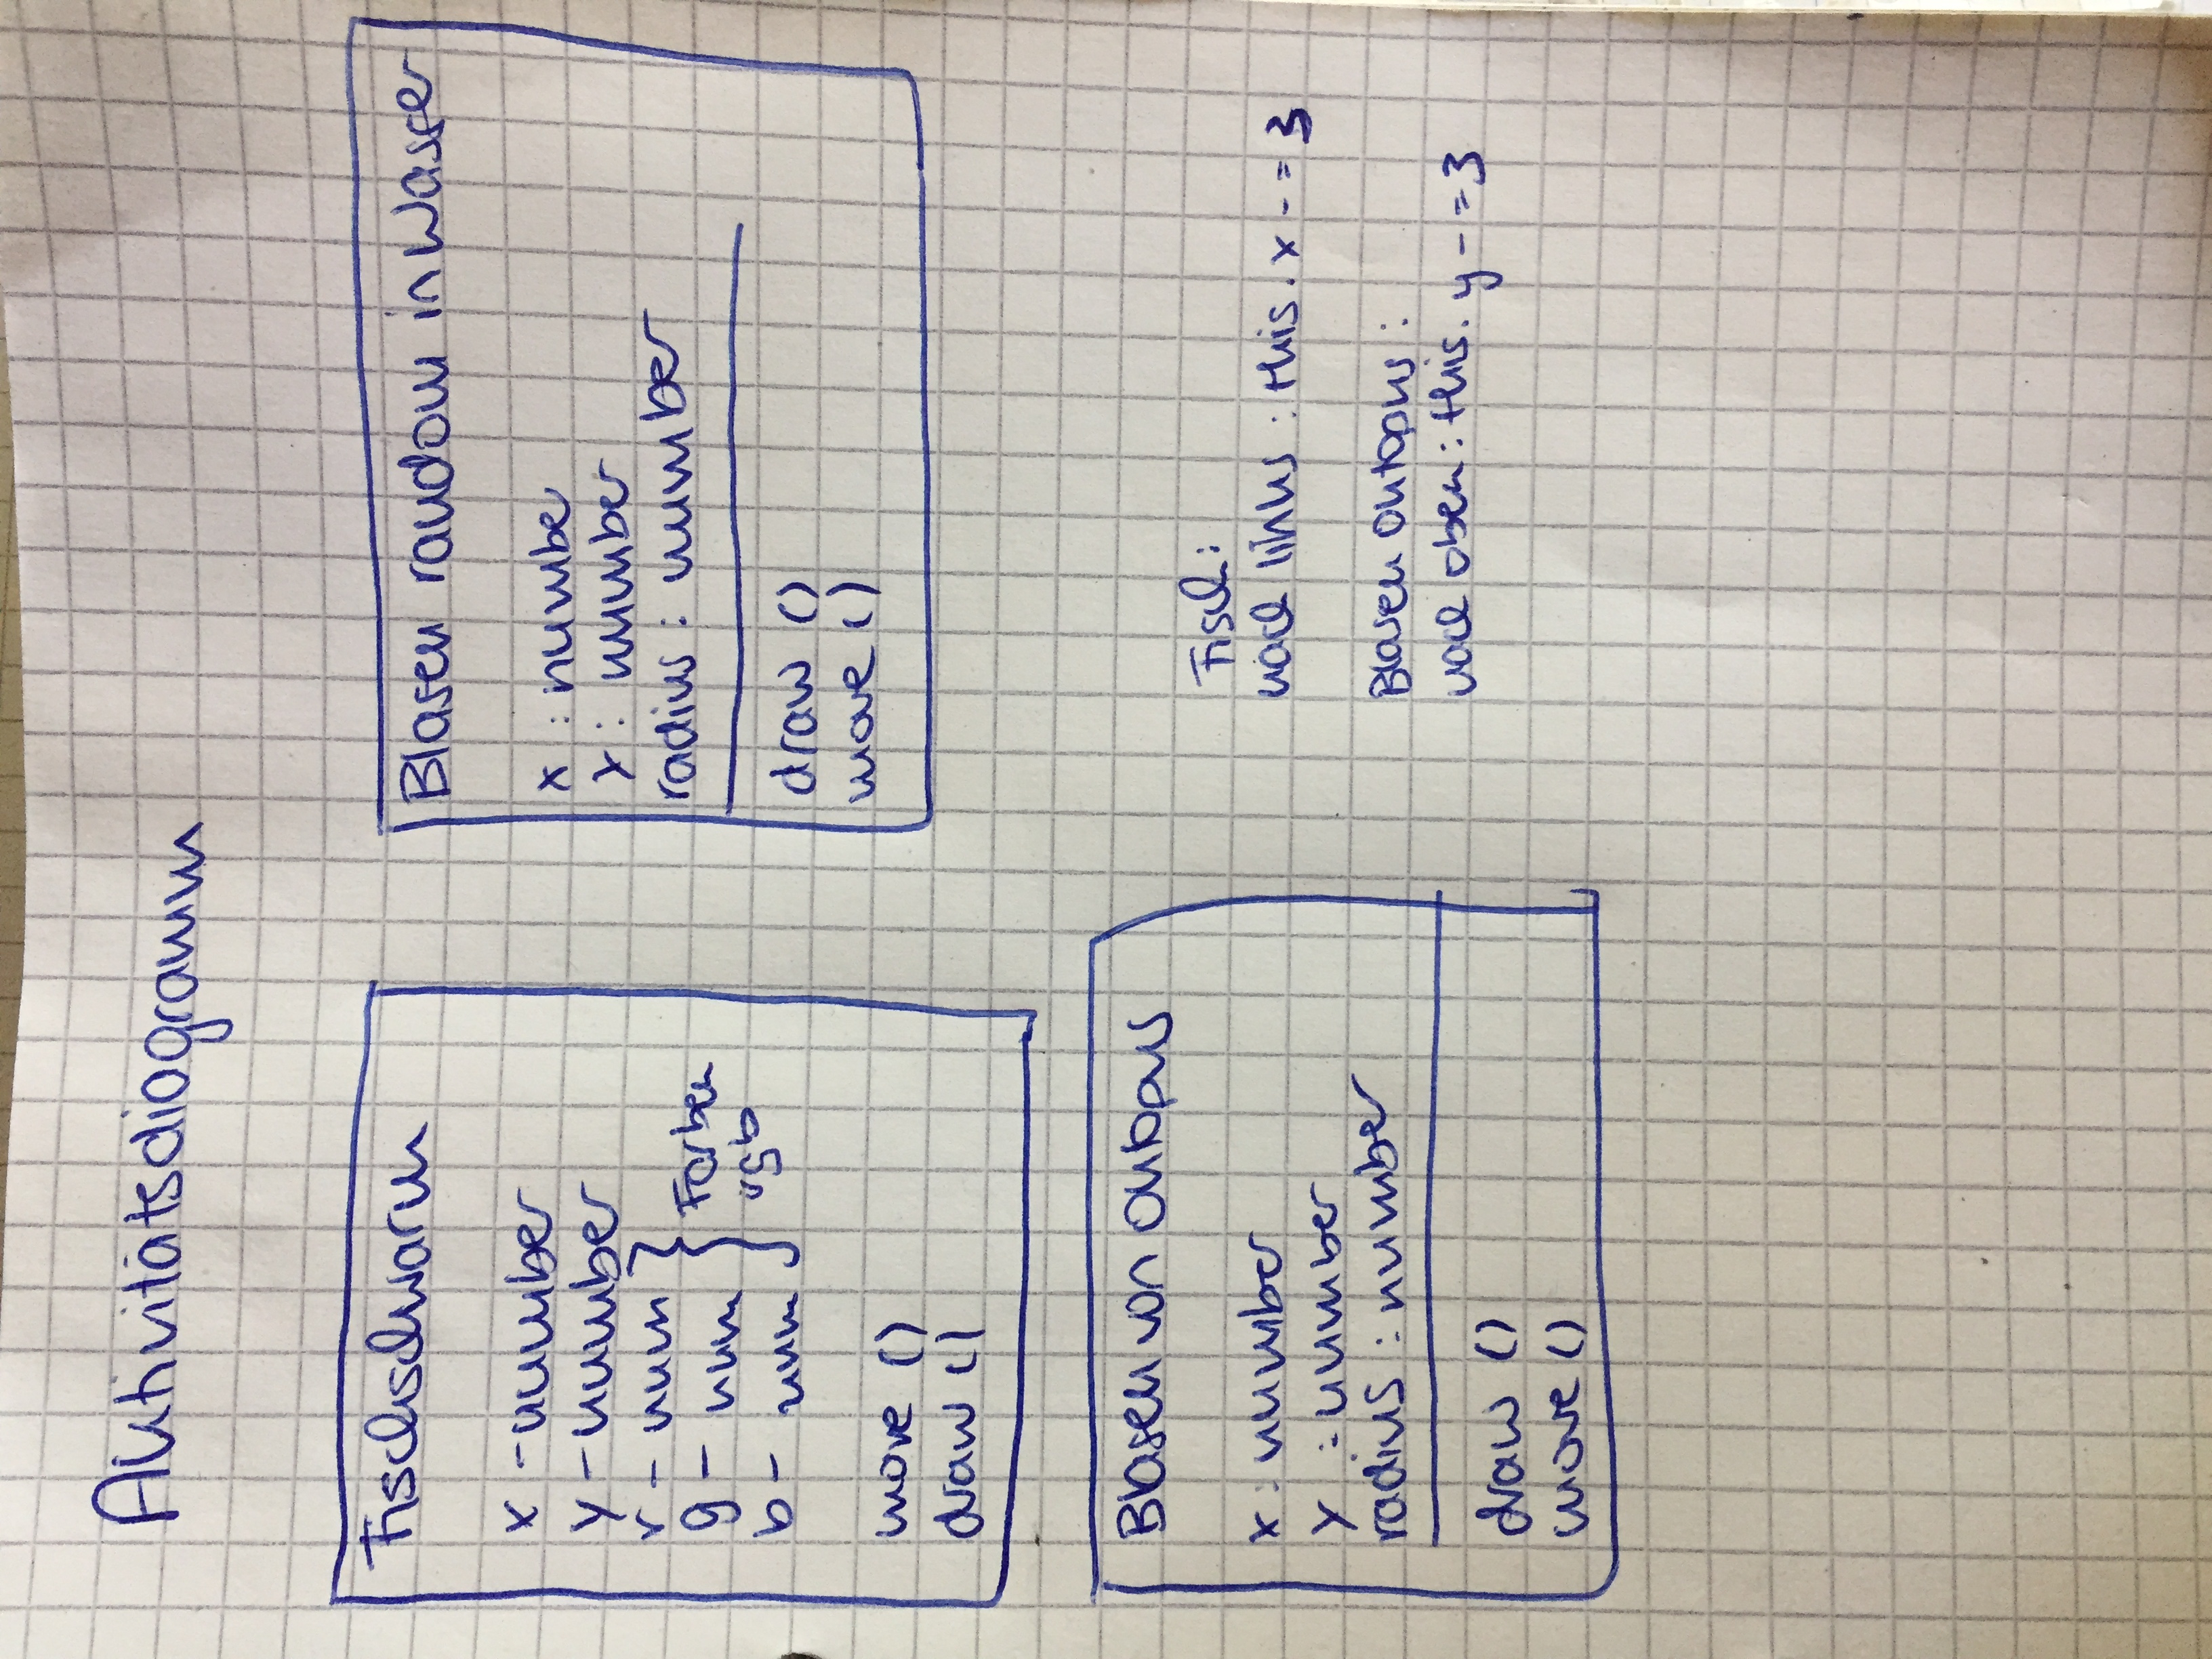 Aktivitätsdiagramm
Fischschwarm
x - number
y - number
r - num
g - num
b - num
Farben
rgb
move ()
draw ()
Blasen random in Wasser
x : numbe
y : number
radius : number
draw ()
move ()
Blasen von Oktopus
x : number
y : number
radius : number
draw ()
move ()
Fisch:
nach links : this. x -= 3
Blasen Oktopus :
nach oben : this. y -= 3